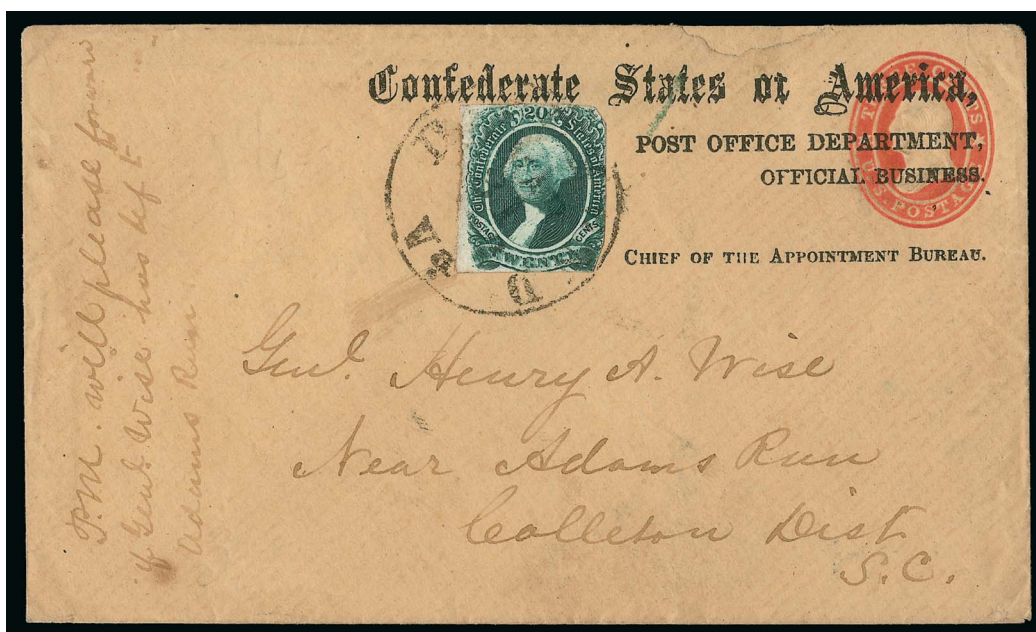 Confederate States of America,
POST OFFICE DEPARTMENT,
OFFICIAL BUSINESS.
CHIEF OF THE APPOINTMENT BUREAU.
THREE CENTS
U.S. POSTAGE
20
The Confederate States of America
POSTAGE CENTS
TWENTY
VA
D
Genl. Henry A. Wise
Near Adams Run
Colleton Dist
S.C.
P.M. will please forward
if Genl. Wise has left
Adams Run